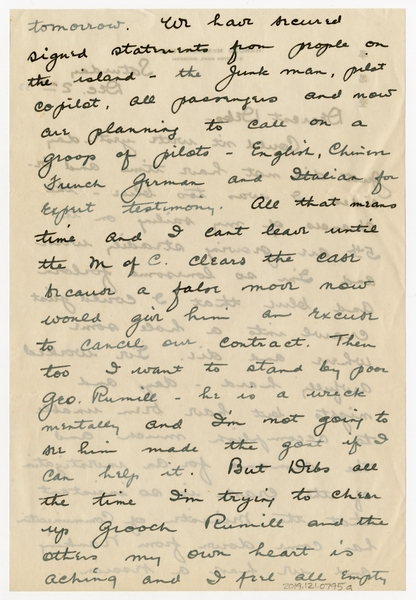 tomorrow. We have secured
signed statements from people on
the island - the Junk man, pilot
copilot, all passengers and now
are planning to call on a
group of pilots - English, Chinese
French German and Italian for
expert testimony. All that means
time and I cant leave until
the M of C. clears the case
because a false move now
would give him an excuse
to cancel our contract. Then
too I want to stand by poor
Geo. Rumill - he is a wreck
mentally and I'm not going to
see him made the goat if I
can help it. But Debs all
the time I'm trying to cheer
up Grooch Rumill and the
others my own heart is
aching and I feel all empty
2019.121.0795a